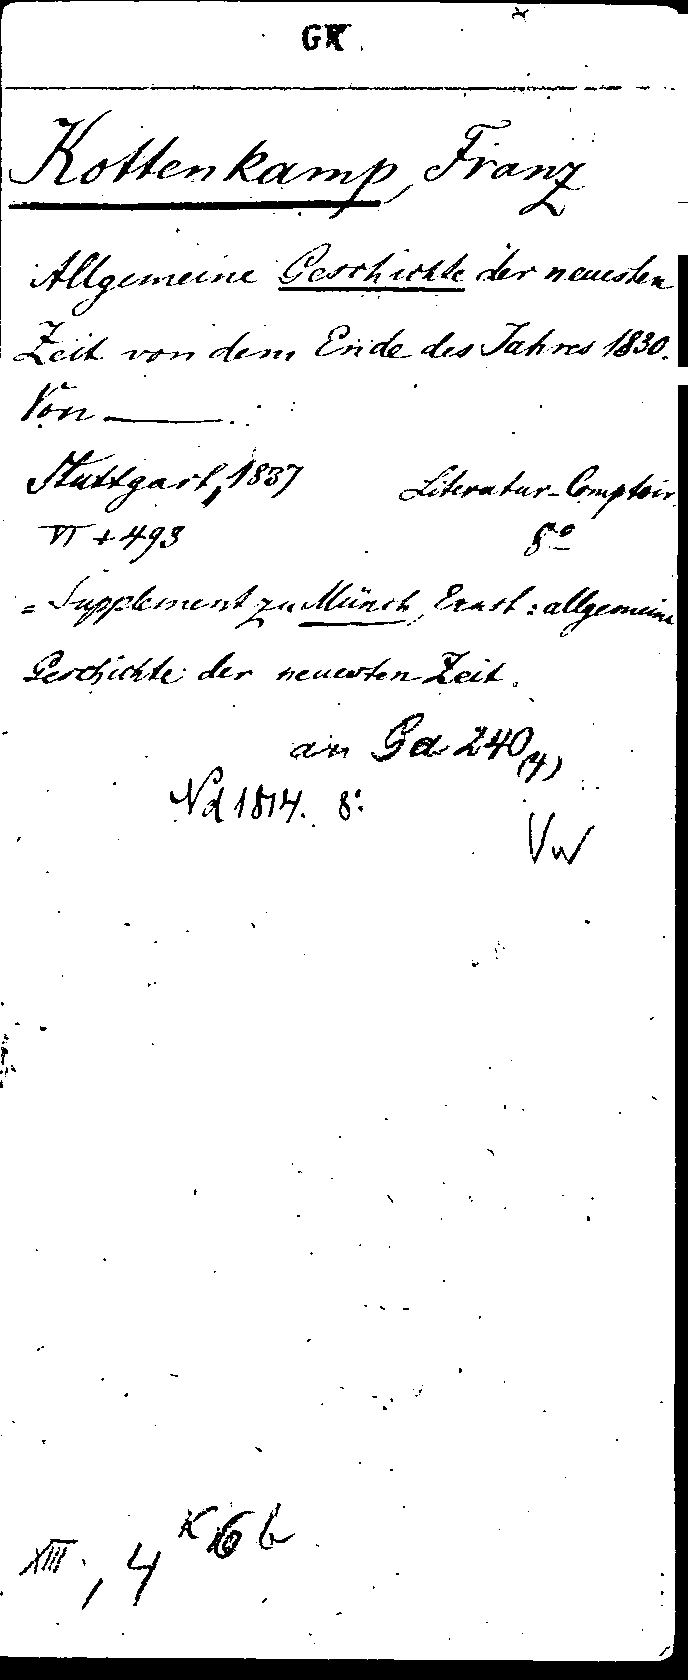 GK.
Kottenkamp, Franz
Allgemeine Geschichte der neuesten
Zeit von dem Ende des Jahres 1830.
Von ———
Stuttgart, 1837 Literatur-Comptoir.
VI + 493 8°
= Supplement zu Münch, Ernst: allgemeine
Geschichte der neuesten Zeit.
an Gd 240(4)
Nd 1814. 8:
VW
XIII., 4 K 6 b